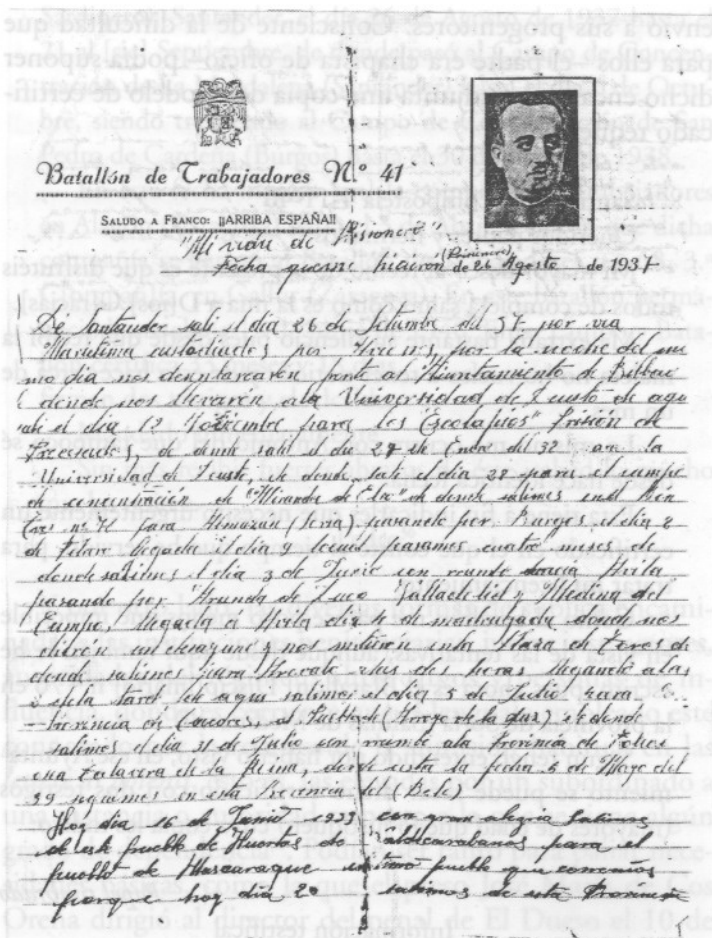 Batallón de Trabajadores N.º 41
SALUDO A FRANCO: ¡¡ARRIBA ESPAÑA!!
"Mi vida de Prisionero".
(Prisionero)
Fecha que me hicieron de 26 Agosto de 1937
De Santander sali el dia 26 de Setiembre del 37 por via
Maritima custodiados por por la noche del mis
mo dia nos desenbarcaron frente al Ayuntamiento de Bilbao
de donde nos llevarón ala Universidad de Deusto de aqui
sali el dia 12 para los "Escolapios" Prisión de
de donde sali el dia 27 de Enero del 38 con la
Universidad de Deusto, de donde sali el dia 28 para el campo
de concentración de "Miranda de Ebro" de donde salimos en el
nº 41 para Almazán (Soria) pasando por Burgos el dia 8
de Febrero llegada el dia 9 pasamos cuatro meses de
donde salimos el dia 3 de Junio con rumbo hacia Avila
pasando por Aranda de Duero Valladolid y Medina del
Campo, llegada á Avila dia 4 de madrugada donde nos
dierón un desayuno y nos metieron enla Plaza de Toros de
donde salimos para Arevalo alas dos horas llegando alas
dela tarde de aqui salimos el dia 5 de Julio para
Provincia de Caceres, al Pueblo de (Arroyo de la Luz) de donde
salimos el dia 31 de Julio con rumbo ala Provincia de Toledo
Talavera de la Reina, donde esta la fecha 5 de Mayo del
39 seguimos en esta Provincia de
Hoy dia 16 de Junio 1939 con gran alegria salimos
de este pueblo de Huertas de Valdecarabanos para el
pueblo de Mascaraque pueblo que
porque hoy dia 20 salimos de esta Provincia